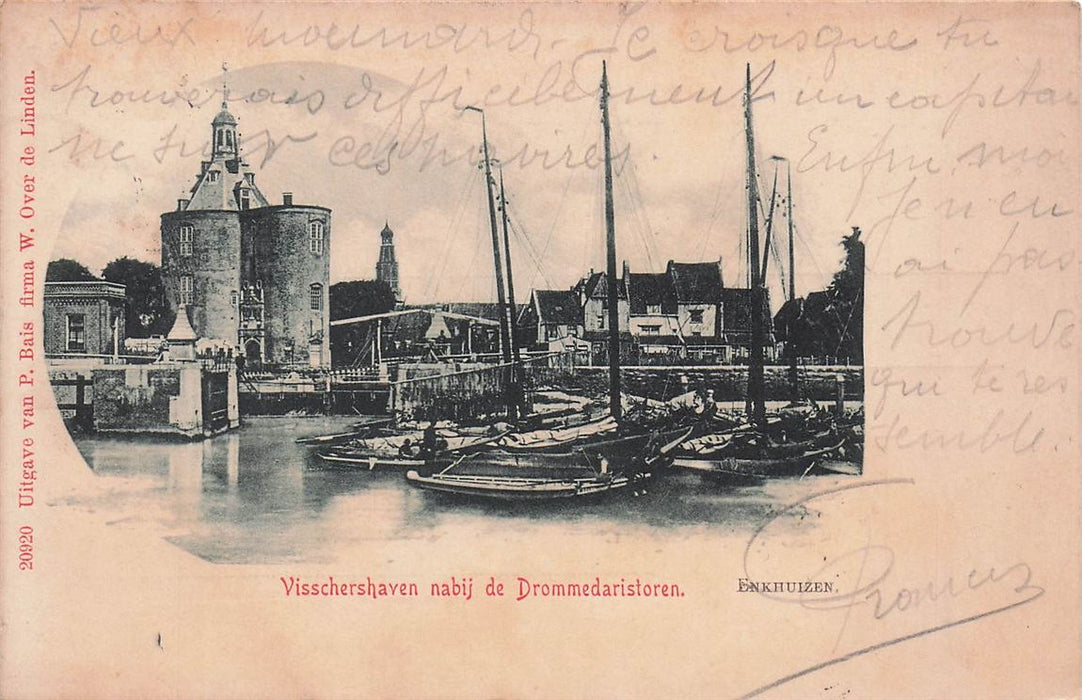 Vieux moumard. Je crois que tu
trouverais difficilement un capitai
ne sur ces navires. Enfin moi
j'en eu
ai pas
trouvé
qui te res
semble.
20920 Uitgave van P. Bais firma W. Over de Linden.
Visschershaven nabij de Drommedaristoren.
ENKHUIZEN.